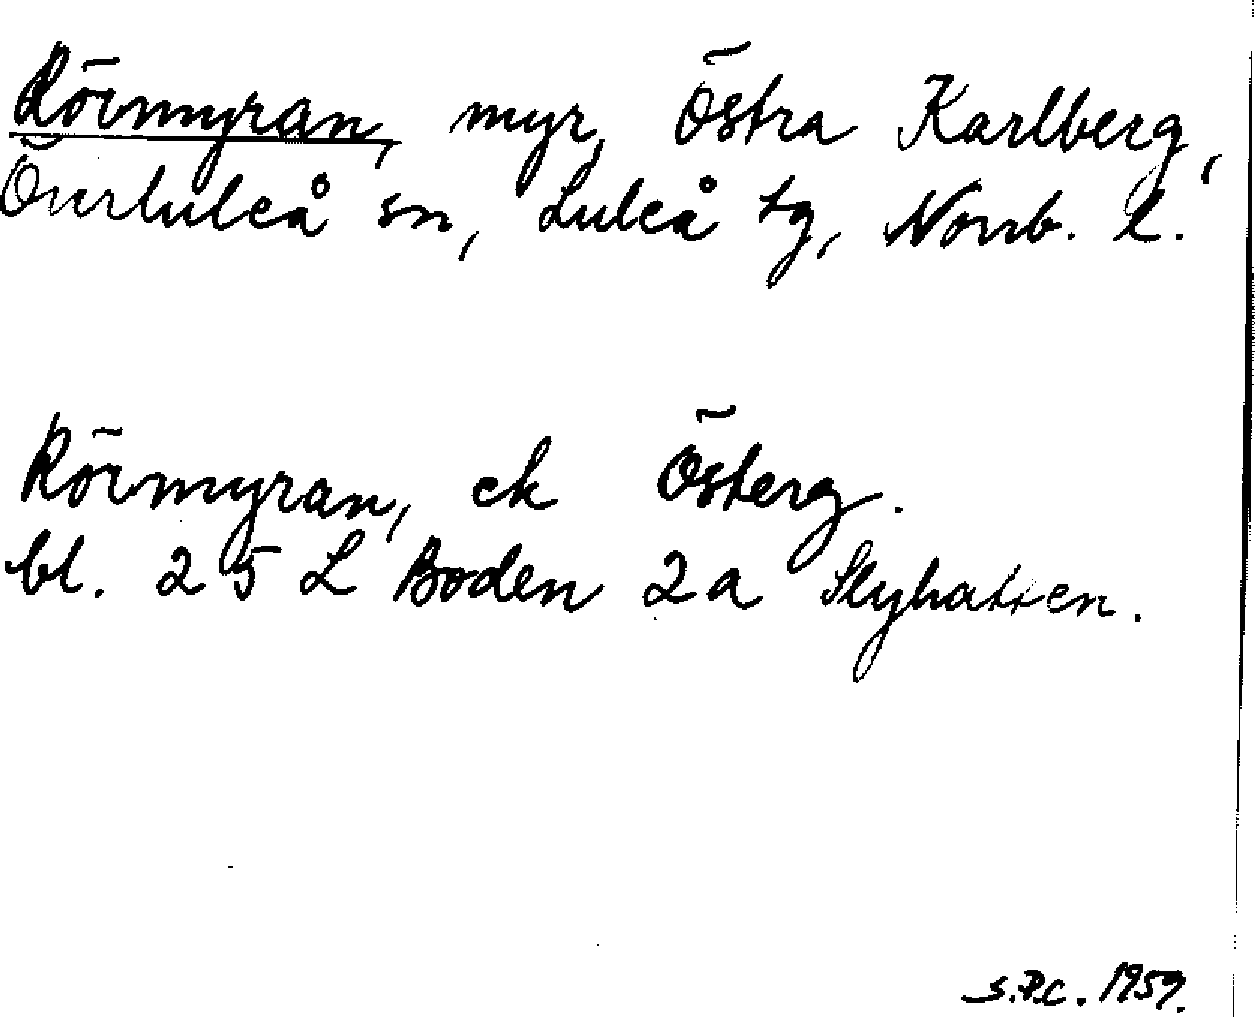 Rörmyran, myr, Östra Karlberg,
Överluleå sn, Luleå tg, Norrb. l.
Rörmyran, ek Österg.
bl. 25 L Boden 2a Slyhatten.
S.P.C. 1959.